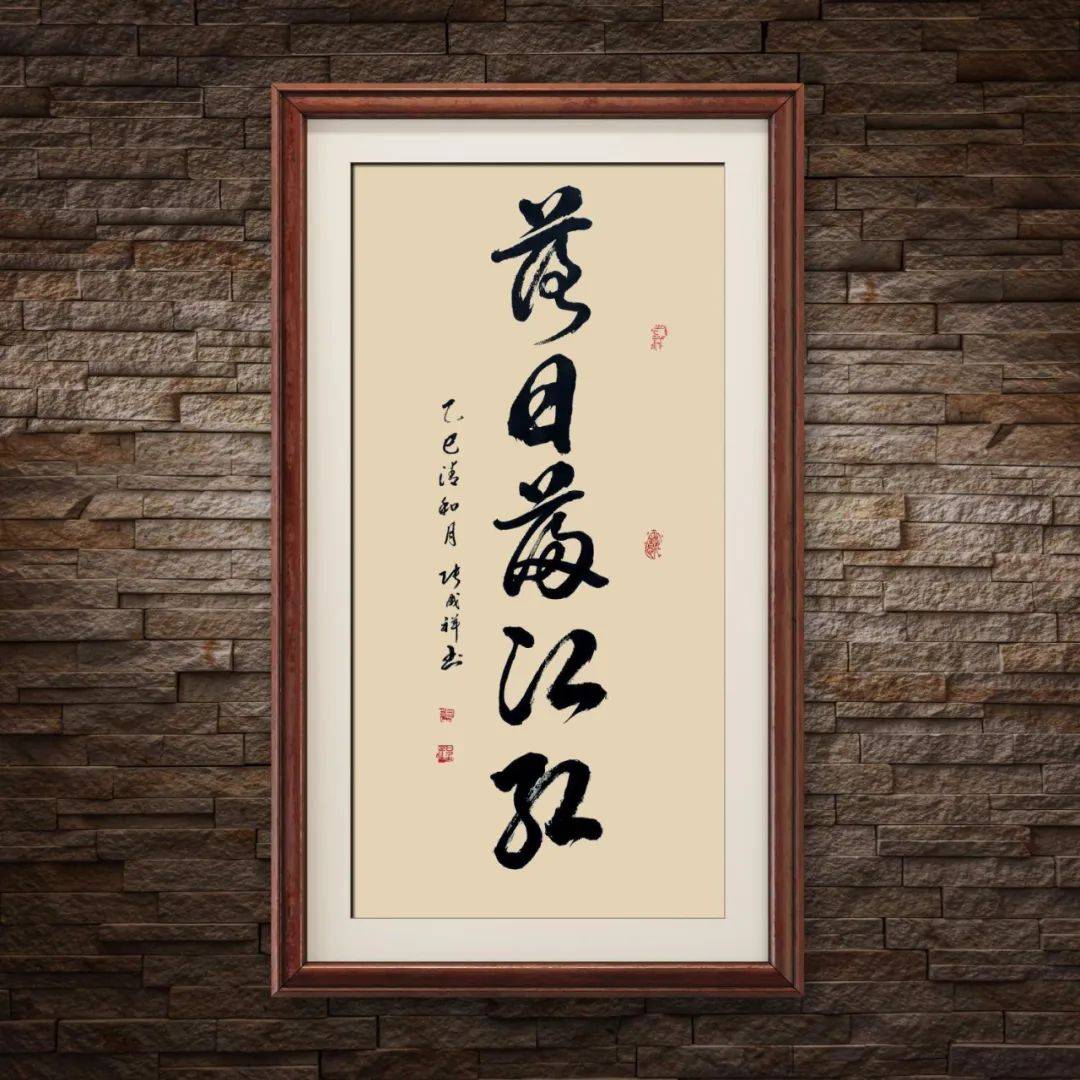 落日江红
乙巳清和月 张成祥书